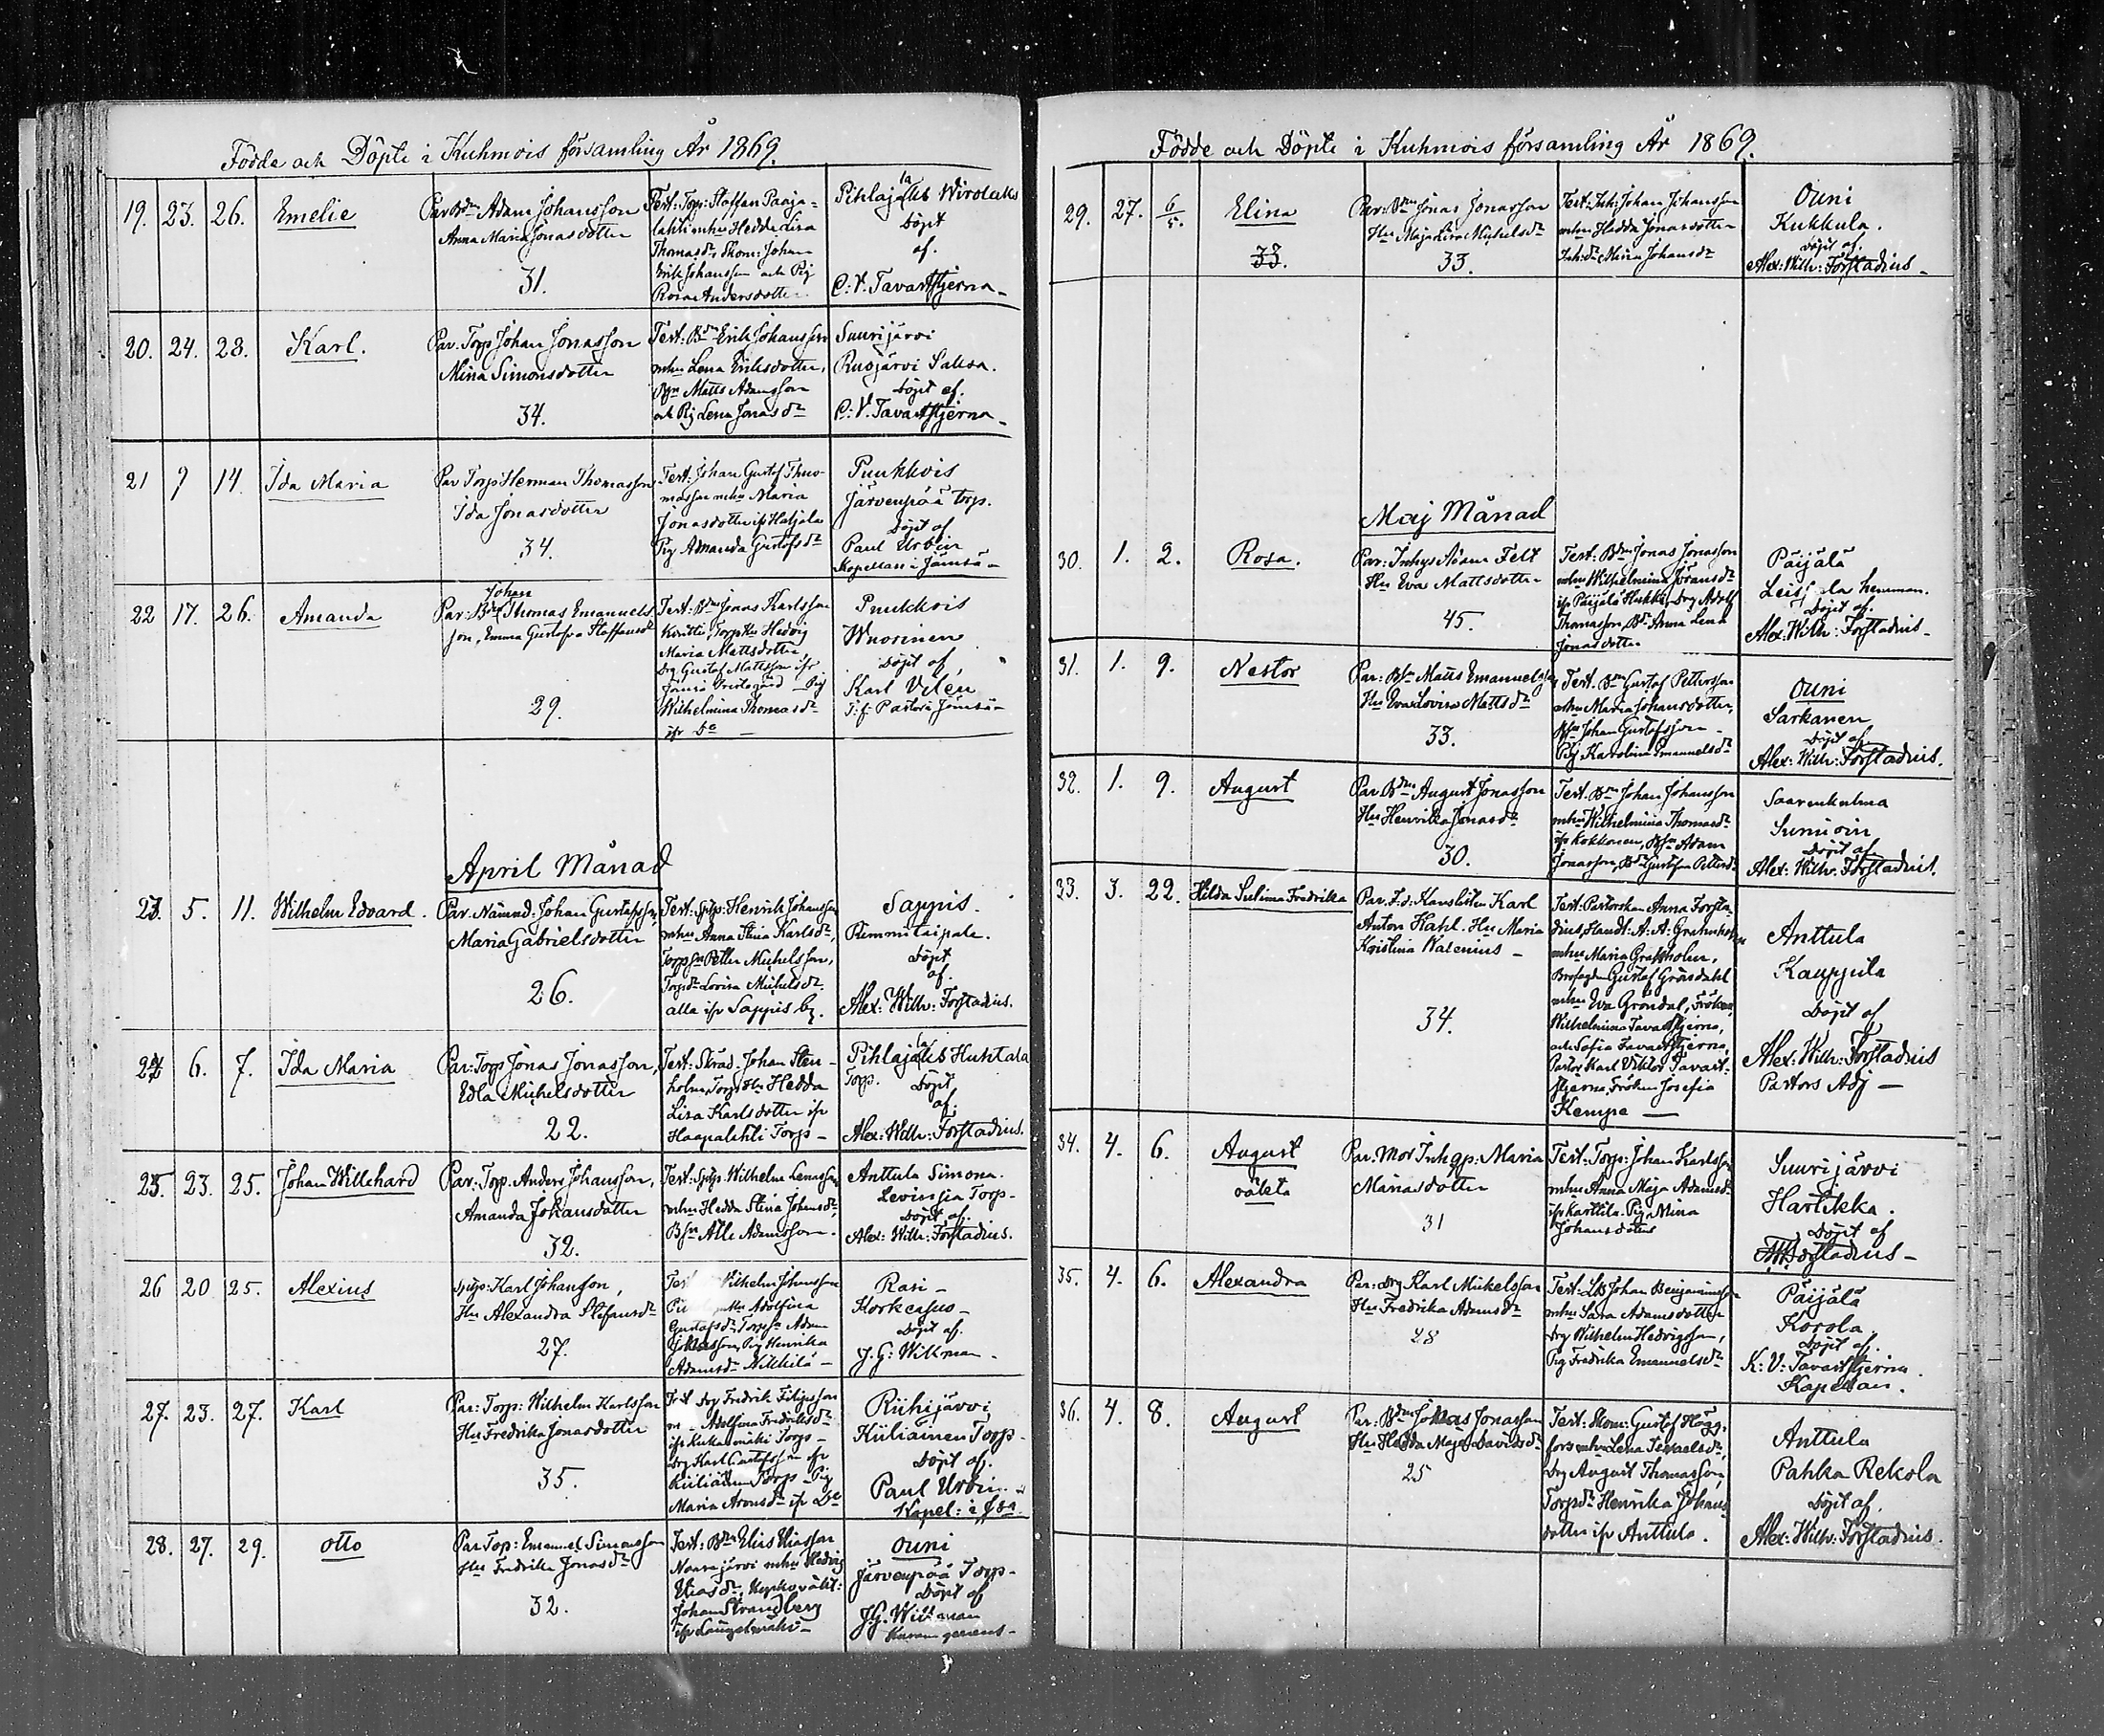 Födde och Döpte i Kuhmois församling År 1869.
19. 23. 26. Emelie
Par. Bdn Adam Johansson
Anna Maria Jonasdotter
31.
Test: Torp: Staffan Paaja=
lahti mhu Hedda Lisa
Thomasdr, Skom: Johan
Erik Johansson och Pig
Rosa Andersdotter.
Pihlajalaks Wirolaks
Döpt
af.
C: V. Tavaststjerna
20. 24. 28. Karl.
Par. Torp Johan Jonasson
Mina Simonsdotter
34.
Test: Bdn Erik Johansson
mhu Lena Eriksdotter,
Bsn Matts Adamsson
och Pig Lena Jonasdr
Suurijärvi
Rusjärvi Saksa.
Döpt af:
C: V. Tavaststjerna
21 7 14. Ida Maria
Par Torp Herman Thomasson
Ida Jonasdotter
34.
Test: Johan Gustaf Tho-
masson mhu Maria
Jonasdotter ifr Hatjala
Pig Amanda Gustafsdr
Puukkois
Järvenpää torp.
Döpt af
Paul Urbin
Kapellan i Jämsä
22 17. 26. Amanda
Johan
Par: Bdn Thomas Emanuels
son, Emma Gustafva Staffansdr
29.
Test: Bdn Jonas Karlsson
Torp Hu Hedvig
Maria Mattsdotter,
Drg Gustaf Mattsson ifr
Jämsä Pig
Wilhelmina Thomasdr
ifr Do
Puukkois
Wuorinen
Döpt af
Karl Vilén
T: f: Pastor i Jämsä
April Månad
23. 5. 11. Wilhelm Edvard.
Par. Nämnd: Johan Gustafsson,
Maria Gabrielsdotter
26.
Test: Sptp: Henrik Johansson
mhu Anna Stina Karlsdr,
Torpsn Petter Michelsson,
Torpdr Lovisa Michelsdr
alla ifr Sappis by.
Sappis.
Rimmitaipale.
Döpt
af.
Alex: Wilh: Forstadius.
24 6. 7. Ida Maria
Par: Torp Jonas Jonasson,
Edla Michelsdotter
22.
Test: Skräd. Johan Sten-
holm, Torp Hu Hedda
Lisa Karlsdotter ifr
Haapalahti Torp
Pihlajalaks Huhtala
Torp. Döpt
af.
Alex: Wilh: Forstadius.
25. 23. 25. Johan Willehard
Par: Torp. Anders Johansson,
Amanda Johansdotter
32.
Test: Sptp. Wilhelm
mhu Hedda Stina Johansdr,
Bsn Alle Adamsson.
Anttula Simona.
Levinsia Torp
Döpt af.
Alex: Wilh: Forstadius.
26 20 25. Alexius
Sptp: Karl Johansson,
Hu Alexandra Stefansdr
27.
Test Wilhelm Johansson
Adolfina
Gustafsdr, Torpsn Adam
Jonasson, Pig Henrika
Adamsdr Nikkilä
Rasi
Korkeasuo
Döpt af.
J. G: Wikman
27. 23. 27. Karl
Par: Torp: Wilhelm Karlsson
Hu Fredrika Jonasdotter
35.
Test Drg Fredrik Filipsson
Adolfina Fredriksdr
ifr Kukasmäki Torp
Drg Karl Gustafsson ifr
Kiiliäinen Torp Pig
Maria Aronsdr ifr Do
Riihijärvi
Kiiliäinen Torp
Döpt af.
Paul Urbin
Kapel: i
28. 27. 29. Otto
Par Torp: Emanuel Simonsson
Hu Fredrika Jonasdr
32.
Test: Bdn Elias Eliasson
Naarajärvi mhu Hedvig
Eliasdr,
Johan Strandberg
ifr
Ouni
Järvenpää Torp
Döpt af
J.G. Wikman
Födde och Döpte i Kuhmois församling År 1869.
29. 27. 6/5. Elina
33.
Par: Bdn Jonas Jonasson
Hu Maja Lisa Michelsdr
33.
Test: Inh: Johan Johansson
mhu Hedda Jonasdotter
Inh: dr Mina Johansdr
Ouni
Kukkula.
Döpt af.
Alex: Wilh: Forstadius
Maj Månad
30. 1. 2. Rosa.
Par: Inhys Adam Felt
Hu Eva Mattsdotter
45.
Test: Bdn Jonas Jonasson
mhu Wilhelmina Göransdr
ifr Päijälä Hukki, Drg Adolf
Thomasson, Bdr Anna Lena
Jonasdotter
Päijälä
Leissala hemman.
Döpt af.
Alex: Wilh: Forstadius
31. 1. 9. Nestor
Par: Bsn Matts Emanuelsson
Hu Eva Lovisa Mattsdr
33.
Test. Bdn Gustaf Pettersson
mhu Maria Johansdotter,
Bsn Johan Gustafsson
Pig Karolina Emanuelsdr
Ouni
Sarkanen
Döpt af
Alex: Wilh: Forstadius.
32. 1. 9. August
Par. Bdn August Jonasson
Hu Henrika Jonasdr
30.
Test. Bdn Johan Johansson
mhu Wilhelmina Thomasdr
ifr Kokkonen, Bsn Adam
Jonasson, Bdr Gustafva Pettersdr
Saarenkulma
Sunioin
Döpt af
Alex: Wilh: Forstadius.
33. 3. 22. Hilda Selima Fredrika
Par. F.d. Kanslisten Karl
Anton Hahl. Hu Maria
Kristina Walenius
34.
Test: Pastorskan Anna Forsta-
dius, Handl: A: A: Grahnholm
mhu Maria Grahnholm,
Gustaf Gröndahl
mhu Eva Gröndal, Fröken
Wilhelmina Tavaststjerna,
och Sofia Tavaststjerna,
Pastor Karl Viktor Tavast-
stjerna, Fröken Josefia
Kempe
Anttula
Kauppila
Döpt af
Alex: Wilh: Forstadius
Pastors Adj
34. 4. 6. August
oäkta
Par. Mor Inhgp: Maria
Mariasdotter
31
Test: Torp: Johan Karlsson
mhu Anna Maja Adamsdr
ifr Karttila. Pig Mina
Johansdotter
Suurijärvi
Hartikka.
Döpt af
AWForstadius
35. 4. 6. Alexandra
Par: drg Karl Mickelsson
Hu Fredrika Adamsdr
28
Test: Lb Johan Benjaminsson
mhu Sara Adamsdotter
Drg Wilhelm Hedvigsson,
Pig Fredrika Emanuelsdr
Päijälä
Korola
Döpt af.
K: V: Tavaststjerna.
Kapellan.
36. 4. 8. August
Par: Bdn Jonas Jonasson
Hu Hedda Maja Davidsdr
25
Test: Skom: Gustaf Hägg-
fors mhu Lena Israelsdr,
Drg August Thomasson,
Torpdr Henrika Johans
dotter ifr Anttula.
Anttula
Pahka Rekola
Döpt af.
Alex: Wilh: Forstadius.